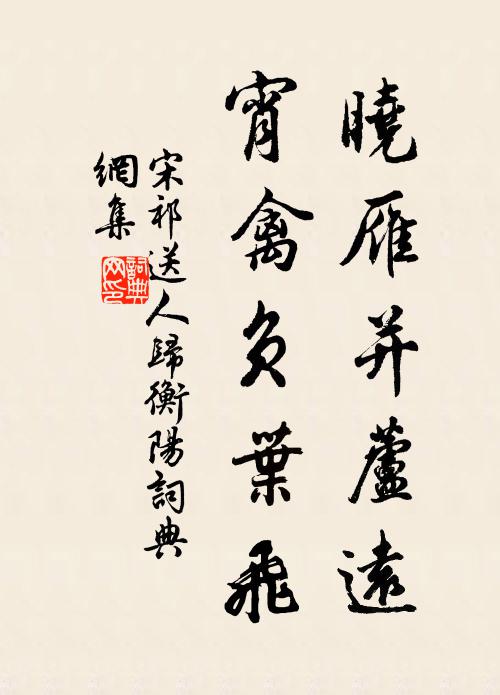 曉雁并蘆遠
宵禽負葉飛
宋祁送人歸衡陽詞典
網集
詞典網印